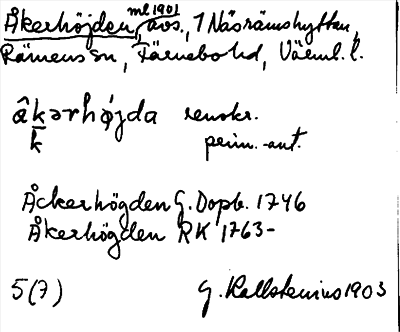 ml 1901
Åkerhöjden, avs., 1 Näsrämshyttan,
Rämens sn, Färnebo hd, Värml. l.
åkǝrhǿjda renskr.
k
prim.-ant.
Åckerhögden G. Dopb. 1746
Åkerhögden RK 1763-
5(7) G. Kallstenius 1903